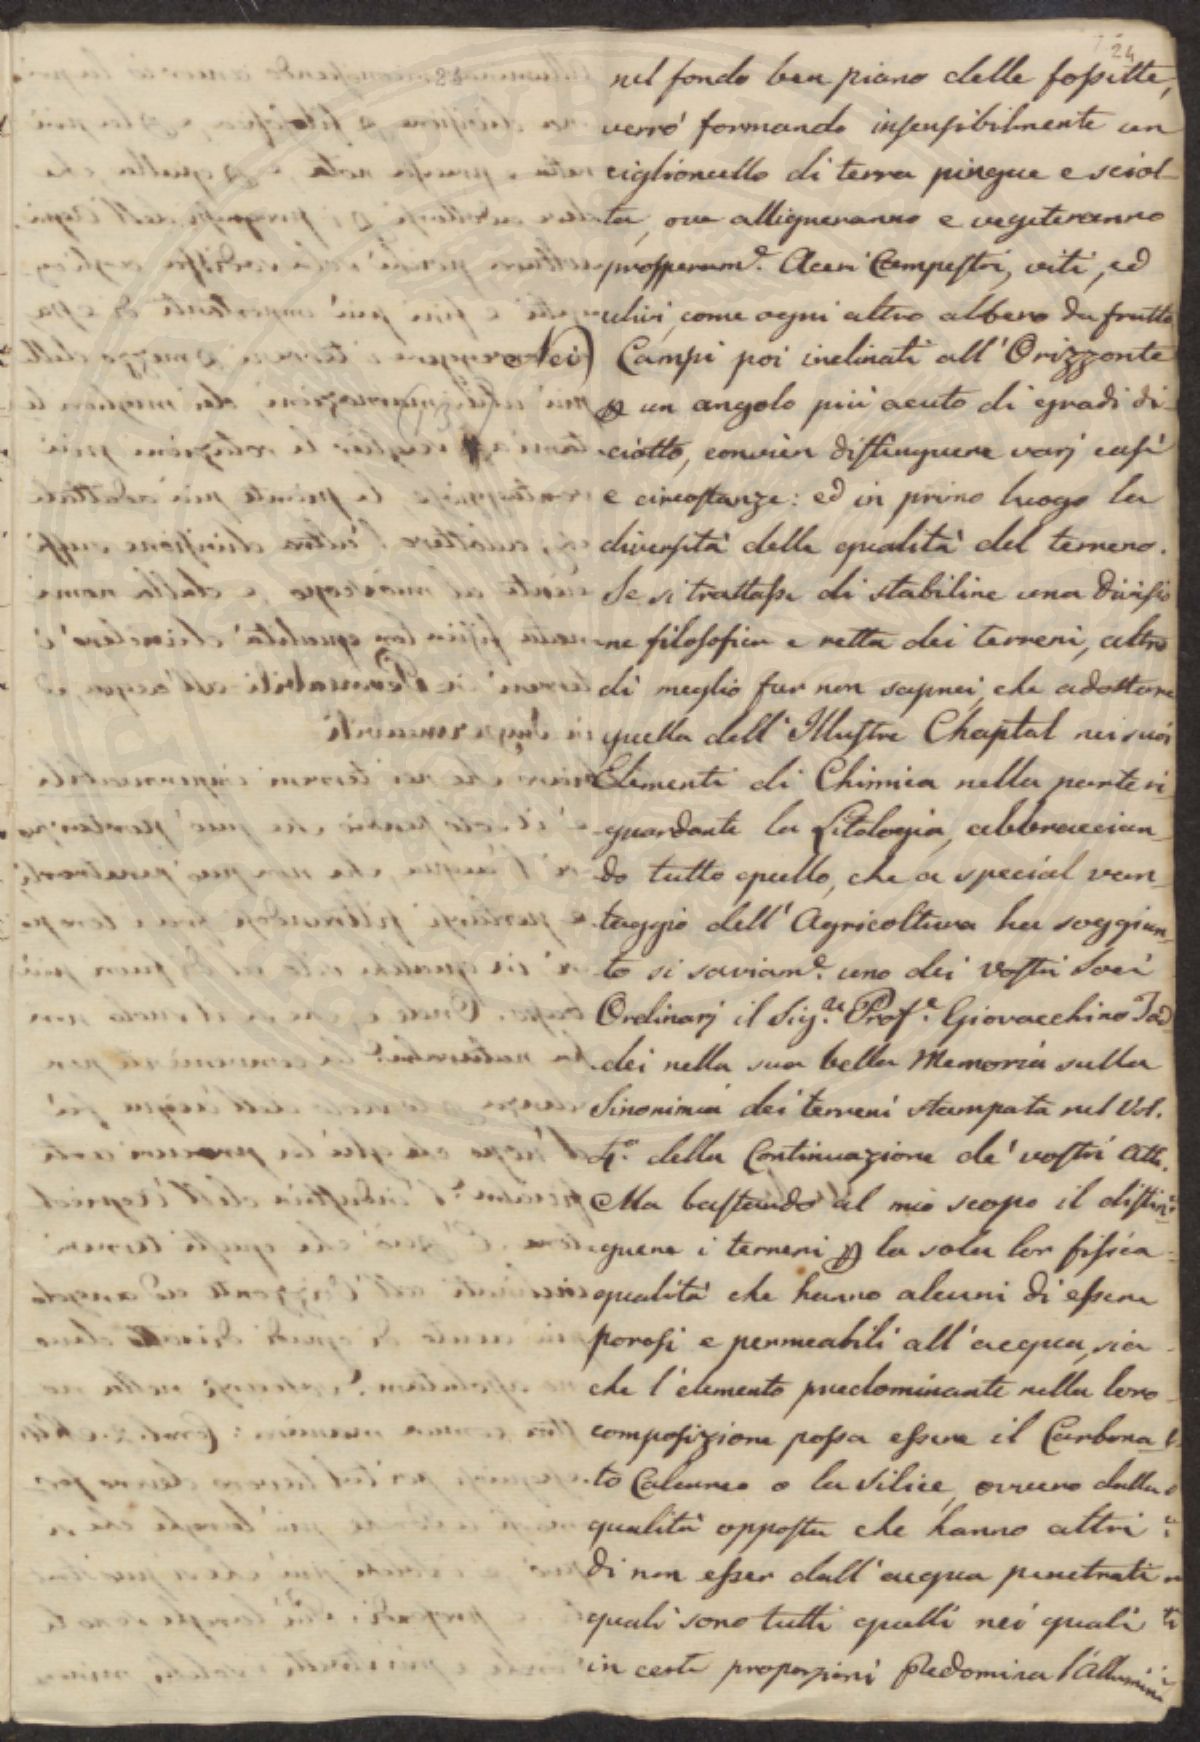 24
nel fondo ben piano delle fossette,
verrò formando insensibilmente un
ciglioncello di terra pingue e sciol-
ta, ove alligneranno e vegeteranno
prosperam.e Aceri Campestri, viti, ed
ulivi, come ogni altro albero da frutto
Nei) Campi poi inclinati all'Orizzonte
p un angolo più acuto di gradi di-
ciotto, convien distinguere varj casi
e circostanze: ed in primo luogo la
diversità della qualità del terreno.
Se si trattasse di stabilire una divisio
ne filosofica e retta dei terreni, altro
di meglio far non saprei, che adottare
quella dell'Illustre Chaptal nei suoi
Elementi di Chimica nella parte ri-
guardante la Litologia, abbraccian-
do tutto quello, che a special van-
taggio dell'Agricoltura ha soggiun-
to si saviam.e uno dei Vostri Soci
Ordinarj il Sig.re Prof.e Giovacchino Tad
dei nella sua bella Memoria sulla
Sinonimia dei terreni stampata nel Vol.
4.o della Continuazione de' vostri Atti.
Ma bastando al mio scopo il distin-
guere i terreni p la sola lor fisica
qualità che hanno alcuni di essere
porosi e permeabili all'acqua, sia
che l'elemento predominante nella loro
composizione possa essere il Carbona
to Calcareo o la Silice, ovvero dalla
qualità opposta che hanno altri
di non esser dall'acqua penetrati
quali sono tutti quelli nei quali
in certe proporzioni predomina l'Allumina